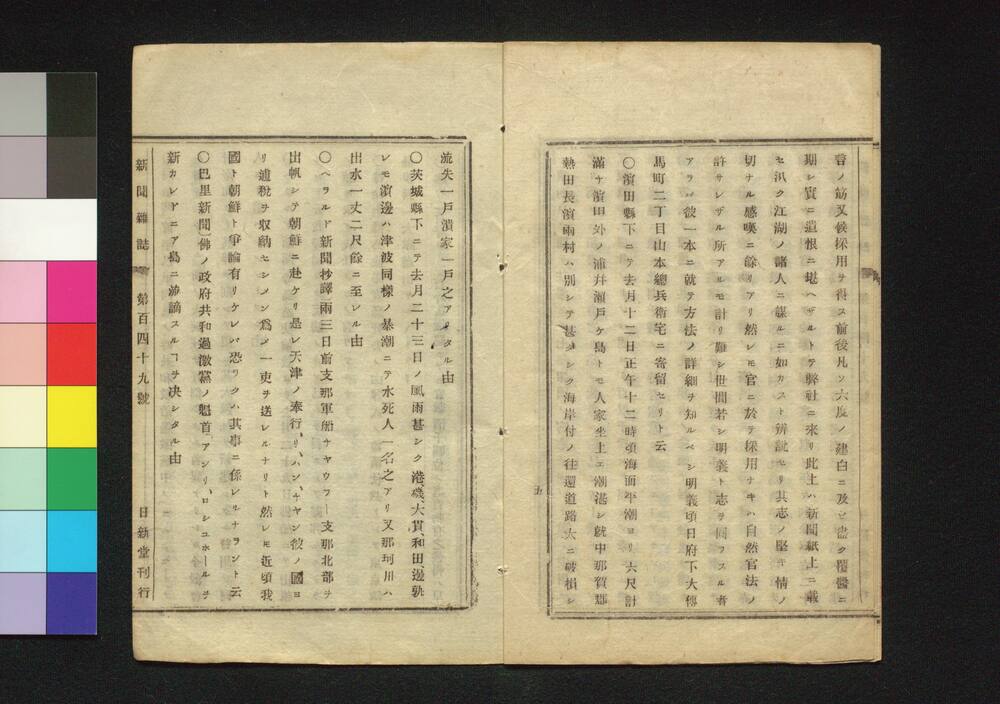 音ノ筋又候採用ヲ得ス前後凡ソ六度ノ建白ニ及ヒ盡ク覆醬ニ
期シ實ニ遺恨ニ堪ヘザルトテ弊社ニ來リ此上ハ新聞紙上ニ載
セ汎ク江湖ノ諸人ニ謀ルニ如カスト辨説セリ其志ノ堅キ情ノ
切ナル感嘆ニ餘リアリ然レモ官ニ於テ採用ナキハ自然官法ノ
許サレザル所アルモ計リ難シ世間若シ明義ト志ヲ同フスル者
アラバ彼一本ニ就テ方法ノ詳細ヲ知ルベシ明義頃日府下大傳
馬町二丁目山本總兵衛宅ニ寄留セリト云
〇濱田縣下ニテ去月十二日正午十二時頃海面平潮ヨリ六尺計
滿ケ濱田外ノ浦井瀬戸ケ島トモ人家坐上エ潮港シ就中那賀郡
熱田長濱兩村ハ別シテ甚シク海岸付ノ往還道路大ニ破損シ
流失一戸潰家一戸之アリタル由
〇茨城縣下ニテ去月二十三日ノ風雨甚シク港、磯、大貫、和田、邊孰
レモ濱邊ハ津波同樣ノ暴潮ニテ水死人一名之アリ又那珂川ハ
出水一丈二尺餘ニ至レル由
〇ヘラルド新聞抄譯 兩三日前支那軍船チヤウフー支那北部ヲ
出帆シテ朝鮮ニ赴ケリ是レ天津ノ奉行、リ、ハン、チヤン彼ノ國ヨ
リ通税ヲ収納セシメンガ爲メ一吏ヲ送レルナリト然レモ近頃我
國ト朝鮮ト爭論有リケレバ恐ラクハ其事ニ係レルナラント云
〇巴里新聞 佛ノ政府共和過激黨ノ魁首「アンリ、ロシユホールヲ
新カレドニア島ニ流謫スルヿヲ决シタル由
新聞雜誌 第百四十九號 日新堂刊行
五